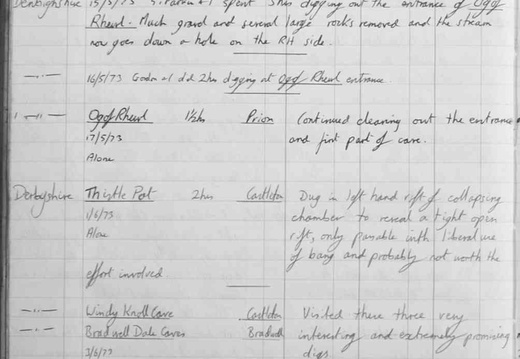 Denbighshire 15/5/73 G. + I spent 3hrs digging out the entrance of Ogof
Rheurl. Much gravel and several large rocks removed and the stream
now goes down a hole on the RH side.
—..— 16/5/73 Godm + I did 2hrs digging at Ogof Rheurl entrance.
1 —..— Ogof Rheurl 1½hrs Prion Continued cleaning out the entrance
17/5/73 and first part of cave.
Alone
Derbyshire Thistle Pot 2hrs Castleton Dug in left hand rift of collapsing
1/6/73 chamber to reveal a tight open
Alone rift, only passable with liberal use
of bang and probably not worth the
effort involved
—..— Windy Knoll Cave Castleton Visited these three very
—..— Bradwell Dale Caves Bradwell interesting and extremely promising
3/6/73 digs